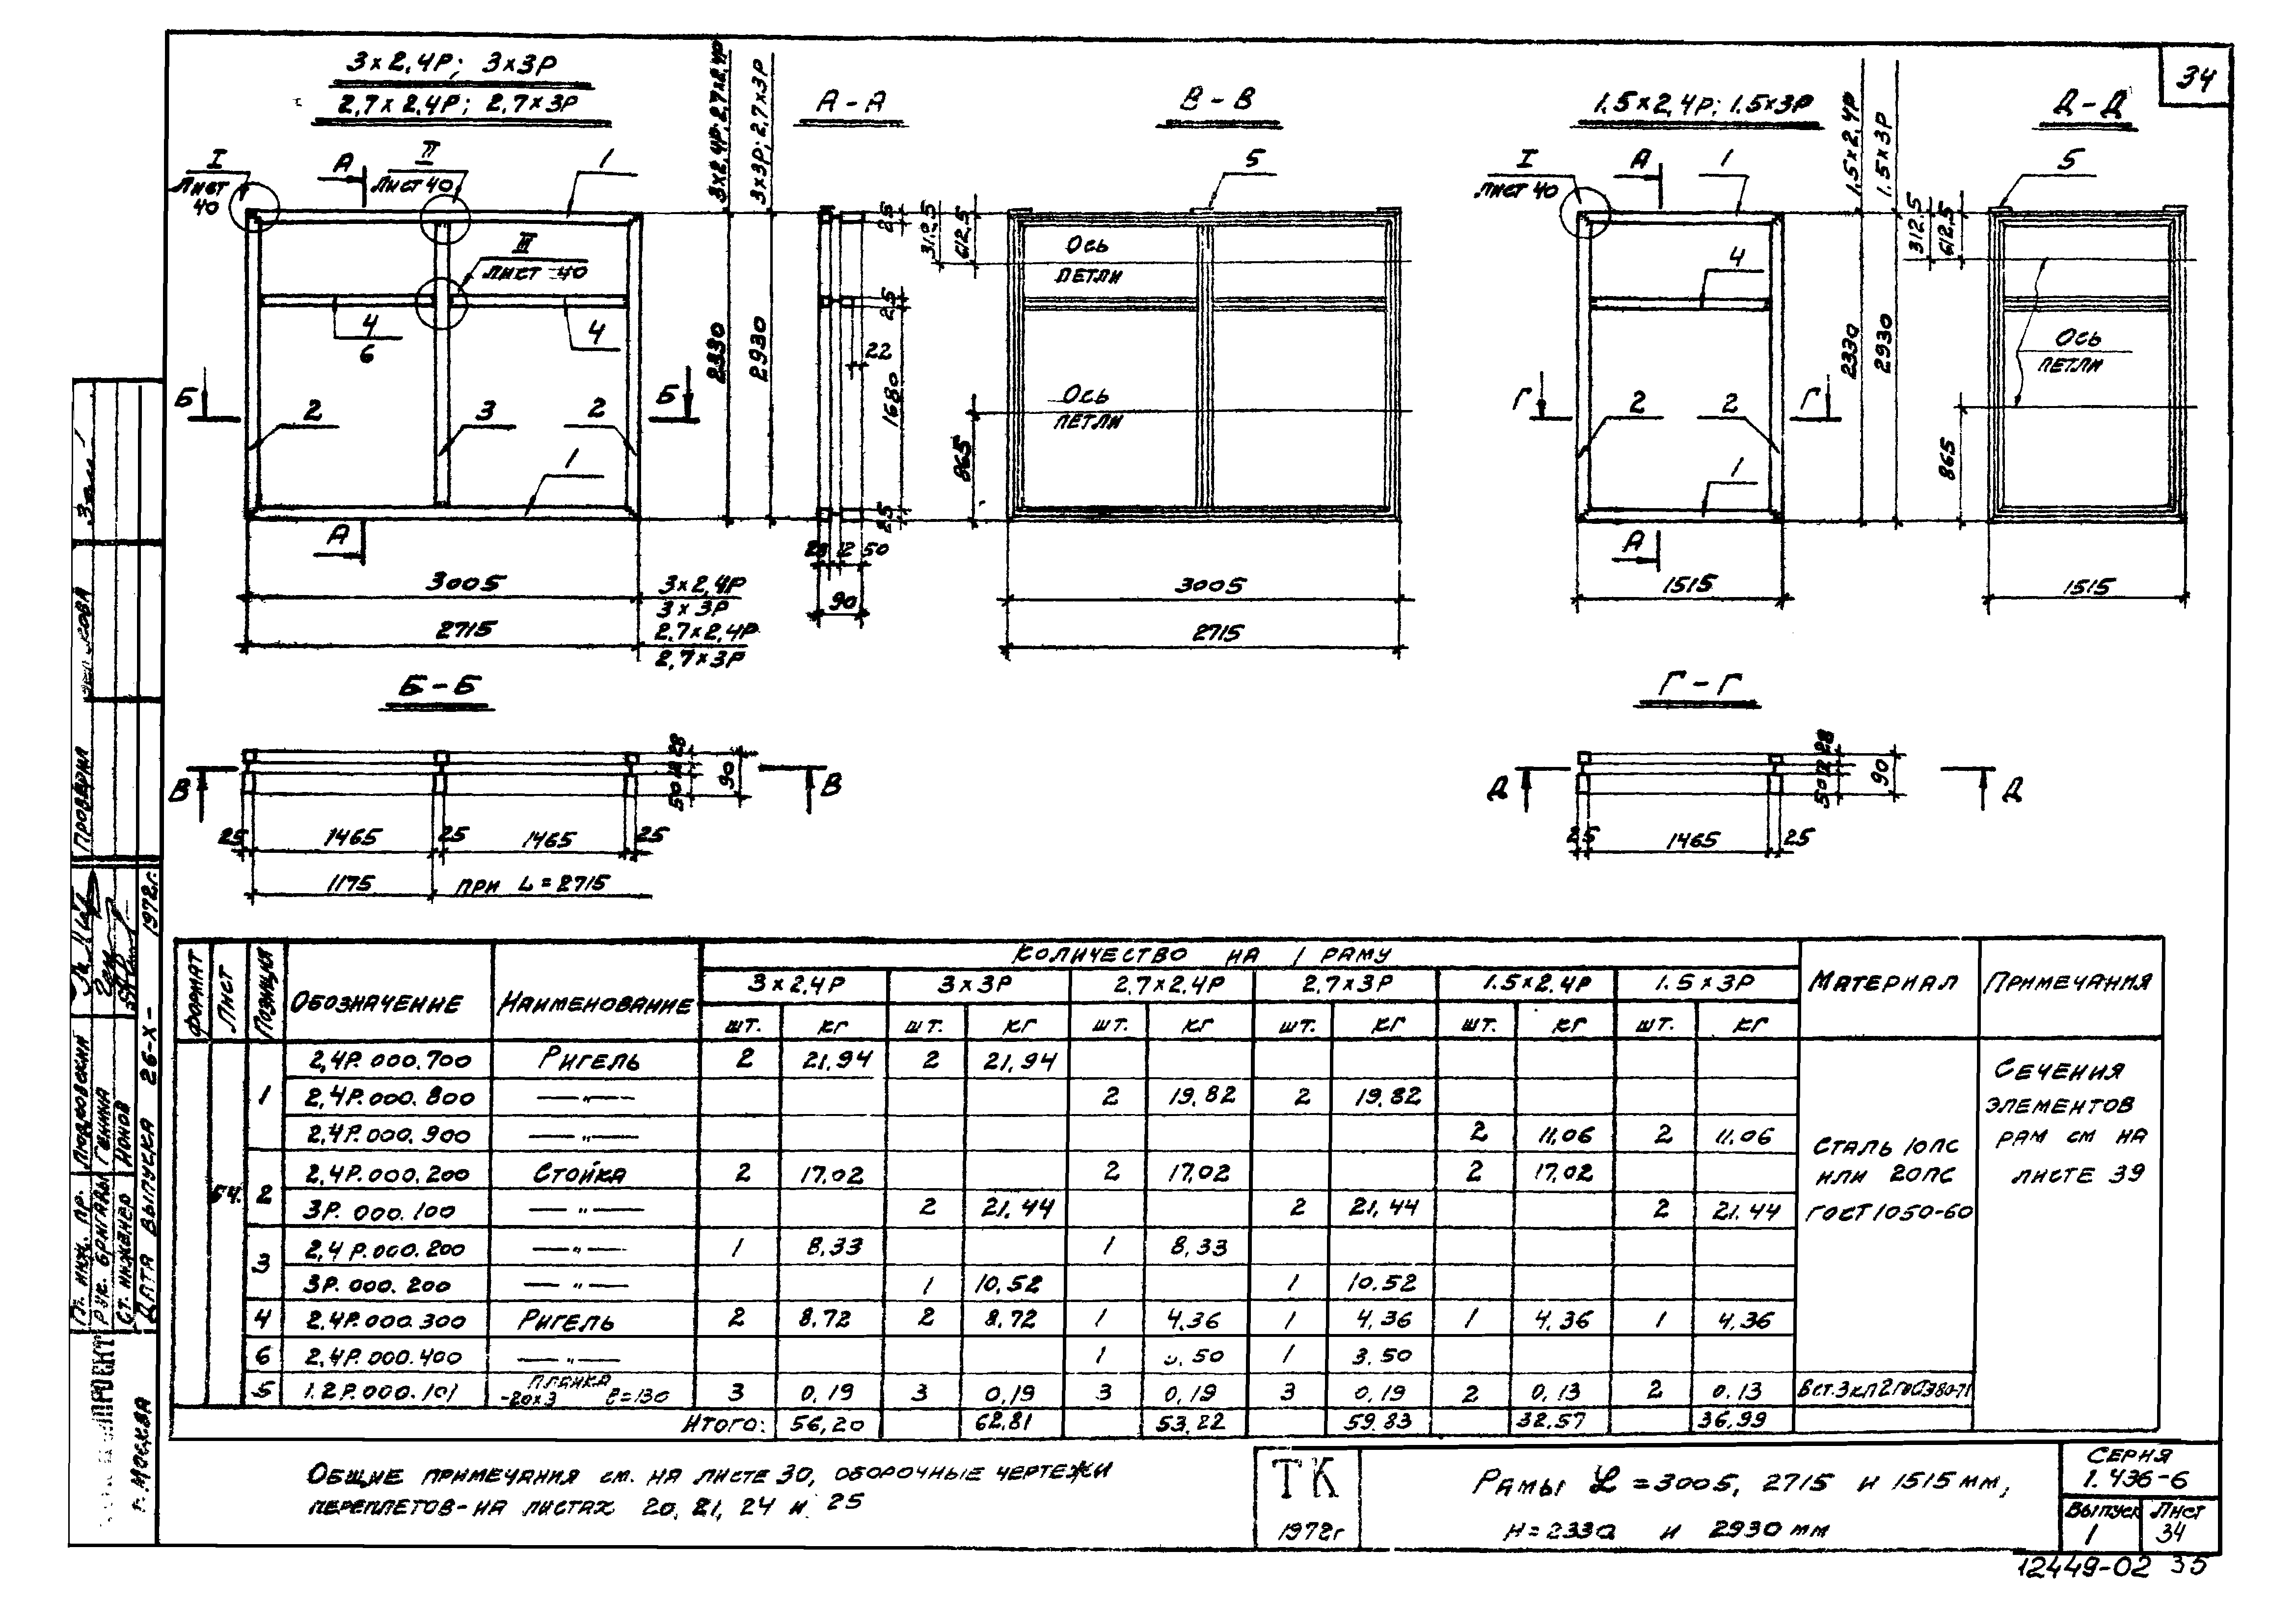 34
3×2,4Р; 3×3Р
2,7×2,4Р; 2,7×3Р
А-А
В-В
1.5×2,4Р; 1.5×3Р
Д-Д
3×2,4Р; 2,7×2,4Р
3×3Р; 2,7×3Р
1.5×2,4Р
1.5×3Р
I
ЛИСТ
40
А
II
ЛИСТ 40
1
III
ЛИСТ 40
4
6
4
Б
2
3
2
Б
1
А
2330
2930
3005
2715
3×2,4Р
3×3Р
2.7×2,4Р
2,7×3Р
25
25
22
1680
25
28
12
50
90
5
312,5
612,5
Ось
ПЕТЛИ
Ось
ПЕТЛИ
865
3005
2715
I
ЛИСТ 40
А
1
4
Г
2
2
Г
1
А
2330
2930
1515
5
312,5
612,5
Ось
ПЕТЛИ
865
1515
Б-Б
В
В
28
12
50
90
25
1465
25
1465
25
1175
ПРИ L=2715
Г-Г
Д
Д
28
12
50
90
25
1465
25
ФОРМАТ
ЛИСТ
ПОЗИЦИЯ
ОБОЗНАЧЕНИЕ
НАИМЕНОВАНИЕ
КОЛИЧЕСТВО НА 1 РАМУ
МАТЕРИАЛ
ПРИМЕЧАНИЯ
3×2,4Р 3×3Р 2,7×2,4Р 2,7×3Р 1.5×2,4Р 1.5×3Р
шт. кг шт. кг шт. кг шт. кг шт. кг шт. кг
1
2,4Р.000.700 РИГЕЛЬ 2 21,94 2 21,94
2,4Р.000.800 —"— 2 19.82 2 19,82
2,4Р.000.900 —"— 2 11,06 2 11.06
Б4.
2
2,4Р.000.200 СТОЙКА 2 17,02 2 17,02 2 17,02
3Р.000.100 —"— 2 21,44 2 21,44 2 21.44
3
2,4Р.000.200 —"— 1 8,33 1 8,33
3Р.000.200 —"— 1 10,52 1 10.52
4 2,4Р.000.300 РИГЕЛЬ 2 8,72 2 8,72 1 4,36 1 4,36 1 4,36 1 4,36
6 2,4Р.000.400 —"— 1 1 3.50
5 1.2Р.000.101 ПЛАНКА -20×3 ℓ=130 3 0,19 3 0,19 3 0,19 3 0,19 2 0,13 2 0.13
ИТОГО: 56,20 62.81 53,22 59.83 32.57 36,99
СТАЛЬ 10ПС
ИЛИ 20ПС
ГОСТ 1050-60
В ст.3 кп 2 ГОСТ380-71
СЕЧЕНИЯ
ЭЛЕМЕНТОВ
РАМ СМ НА
ЛИСТЕ 39
ОБЩИЕ ПРИМЕЧАНИЯ см. НА ЛИСТЕ 30, СБОРОЧНЫЕ ЧЕРТЕЖИ
ПЕРЕПЛЕТОВ-НА ЛИСТАХ 20, 21, 24 и 25
ТК
1972г
РАМЫ L=3005, 2715 и 1515 мм,
Н=2330 и 2930 мм
СЕРИЯ
1.436-6
ВЫПУСК
1
ЛИСТ
34
12449-02 35
ПРОВЕРИЛ
ГЛ. ИНЖ. ПР.
РУК. БРИГАДЫ
СТ. ИНЖЕНЕР
ИОНОВ
ДАТА ВЫПУСКА 26-X- 1972г.
г. МОСКВА